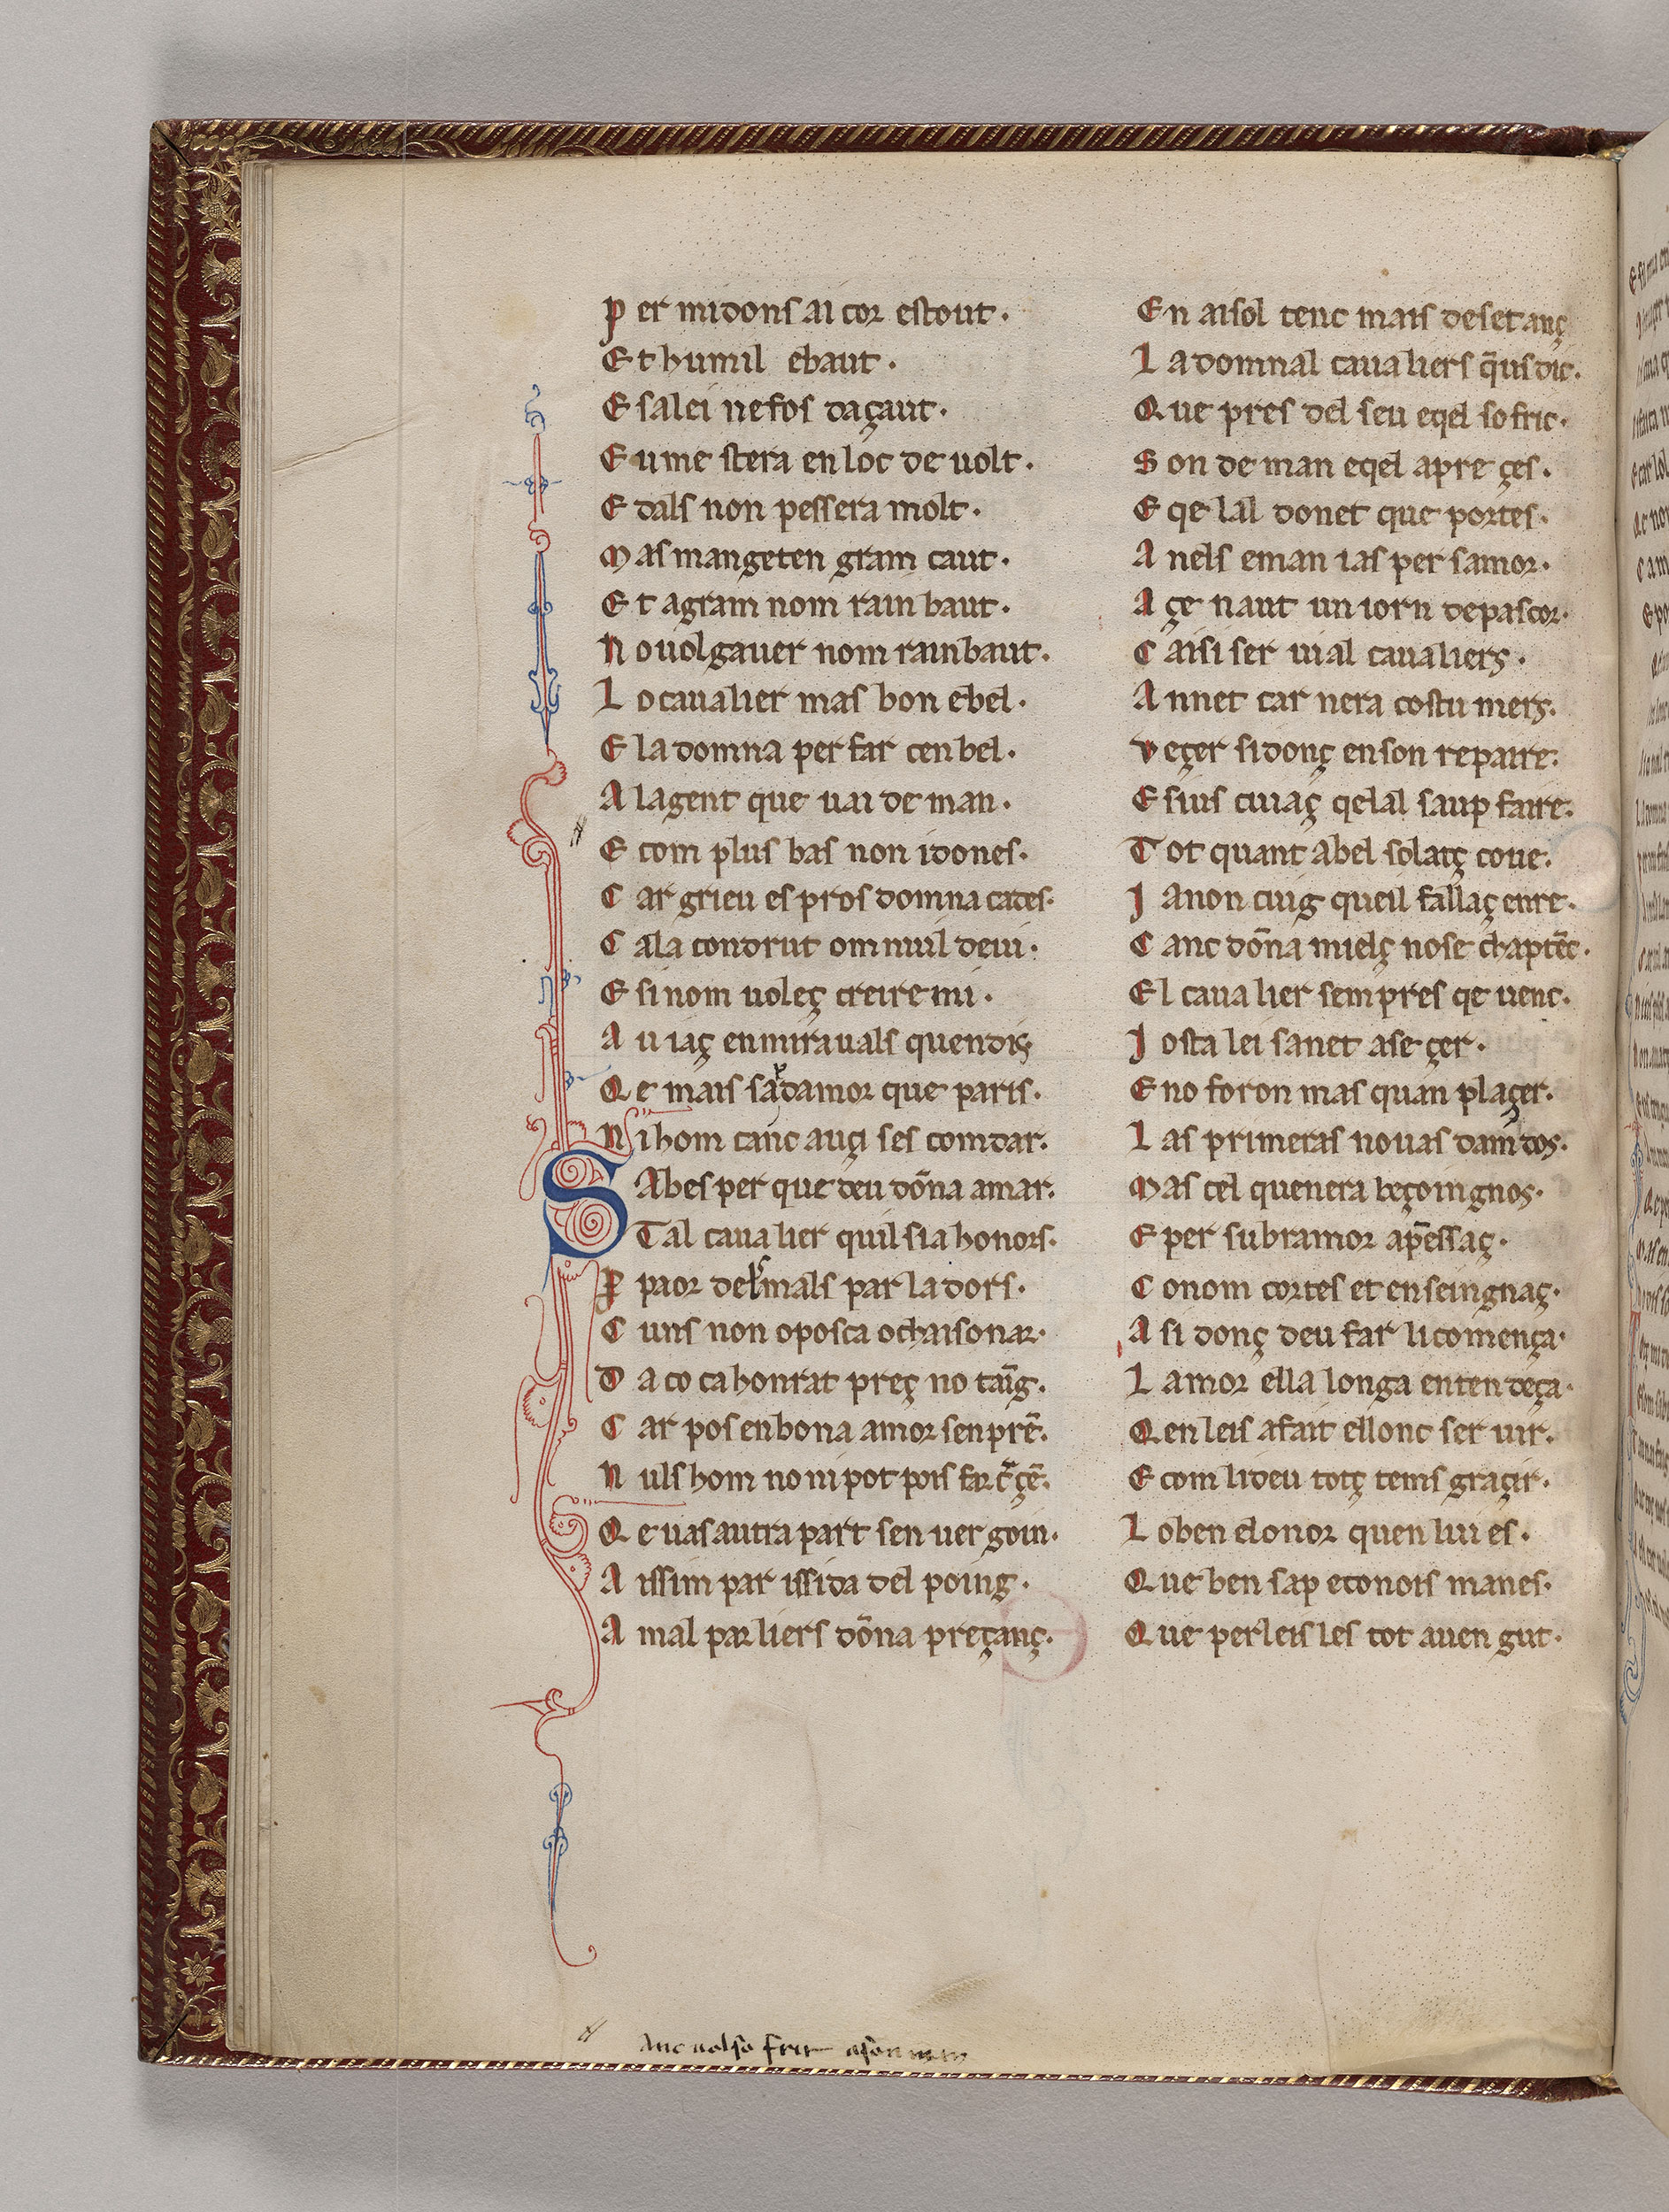 P er midons ai cor estout·
E t humil ebaut·
E sa lei ne fos daçaut·
E u me stera en loc de uolt·
E dals non pessera molt·
M as mangeten gram caut·
E t agram nom rain baut·
N o uol gauer nom rainbaut·
L o caualier mas bon ebel·
E la domna per far cenbel·
A la gent que uai de man·
E com plus bas non i dones·
C ar grieu es pros domna cates·
C ala condrut om nuil deui·
E si nom uoleç creire mi·
A u iaç en mirauals quen dis·
Q e mais sap damor que paris·
N i hom canc auçi ses comdar·
S Abes per que deu dōna amar·
Tal caualier quil sia honors·
P paor dels mals parladors·
C uns non oposca ochaisonar·
D a co ca honrat preç no taīg·
C ar pos en bona amor sen prē·
N uls hom no ni pot pois far
Q e uas autra part sen uergoin·
A issim par issida del poing·
A mal parliers dōna preçanç·
E n aisol tenc mais de setanç
L a domnal caualiers q̄us dic·
Q ue pres del seu eqel sofric·
S on deman eqel apreçes·
E qe lal donet que portes·
A nels emanias per samor·
A çe naut un iorn de pascor·
C aisi ser uial caualiers·
A nnet car nera costumers·
V eçer sidonç en son repaire·
E sius cuiaç qelal saup faire·
T ot quant abel solatç coue·
J a non cuig queil fallaç enre·
C anc dōna mielç nose chaptēc·
E l caualier sempres qe uenc·
J osta lei sanet aseçer·
E no foron mas quan plaçer·
L as primeras nouas damdos·
M as cel quenera beçoingnos·
E per subramor ap̄essaç·
C onom cortes et enseingnaç·
A si donç deu far li comença·
L amor ella longa entendeça·
Q en leis a fait ellonc seruir·
E com li deu totç tems graçir·
L o ben elonor quen lui es·
Q ue ben sap econois manes·
Q ue per leis les tot auengut·
Anc uolso frir